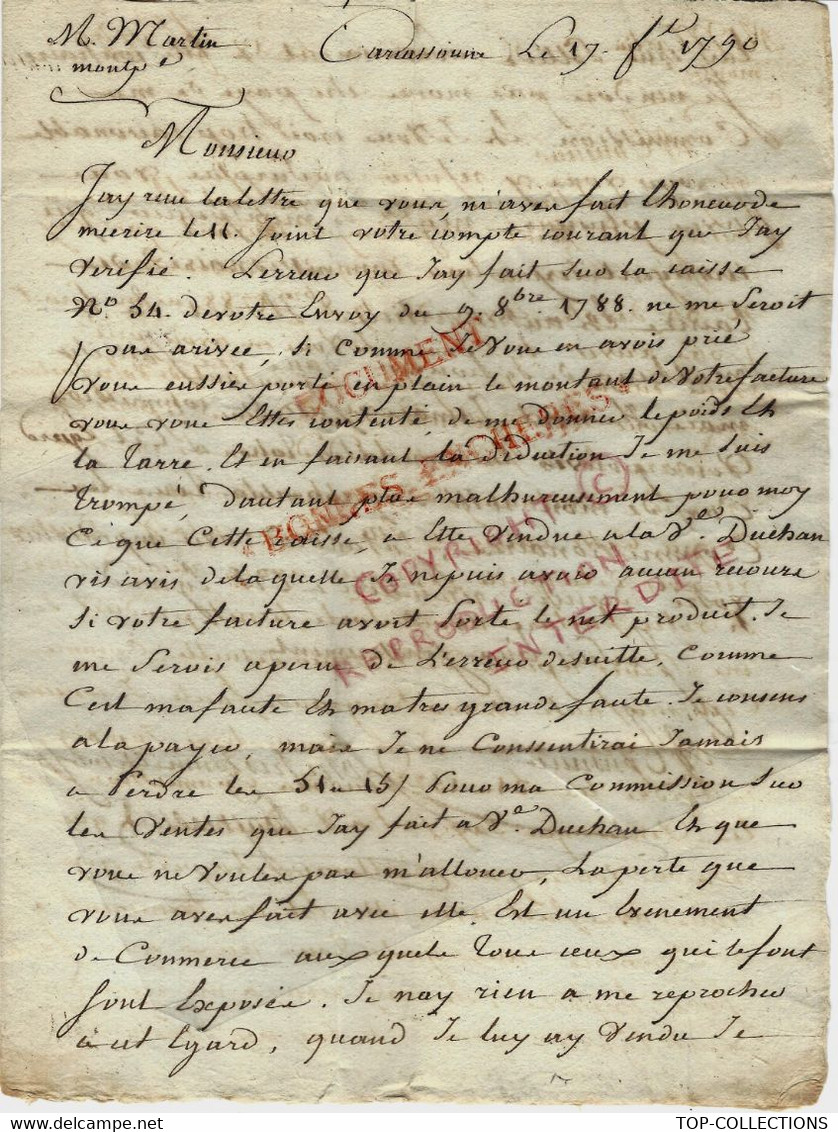 M. Martin
montp.er
Carcassonne Le 17. f.er 1790
Monsieur
Jay recu la lettre que vous m'aves fait Lhoneur de
mecrire le 11. Joint votre Compte Courant que Jay
Verifié. Lerreur que Jay fait sur la caisse
No. 54. de votre Envoy du 9. 8bre 1788. ne me Seroit
pas arivée, si Comme Je vous en avois prié
vous eussies porté en plain le montant de Votre facture
vous vous Ettes contenté de me donner le poids Et
la Tarre. Et en faisant la deduction Je me suis
trompé, dautant plus malhureusement pour moy
Ce que Cette Caisse, a Ette Vendue a la Ve. Duchan
vis avis de laquelle Je ne puis avoir aucun recours
si votre facture avoit porté le net produit. Je
me Serois apercu de Lerreur de suitte, Comme
C'est ma faute Et ma tres grande faute. Je consens
a la payer, mais Je ne Consentirai Jamais
a Perdre les 51 15/ Pour ma Commission Sur
les Ventes que Jay fait a Ve. Duchan Et que
vous ne Voules pas m'allouer, La perte que
vous aves fait avec elle. Est un Evenement
de Commerce aux quels Tous ceux qui le font
sont Exposés. Je nay rien a me reprocher
a cet Egard, quand Je luy ay Vendu Je
DOCUMENT
COPYRIGHT (C)
REPRODUCTION
INTERDITE
TOP-COLLECTIONS